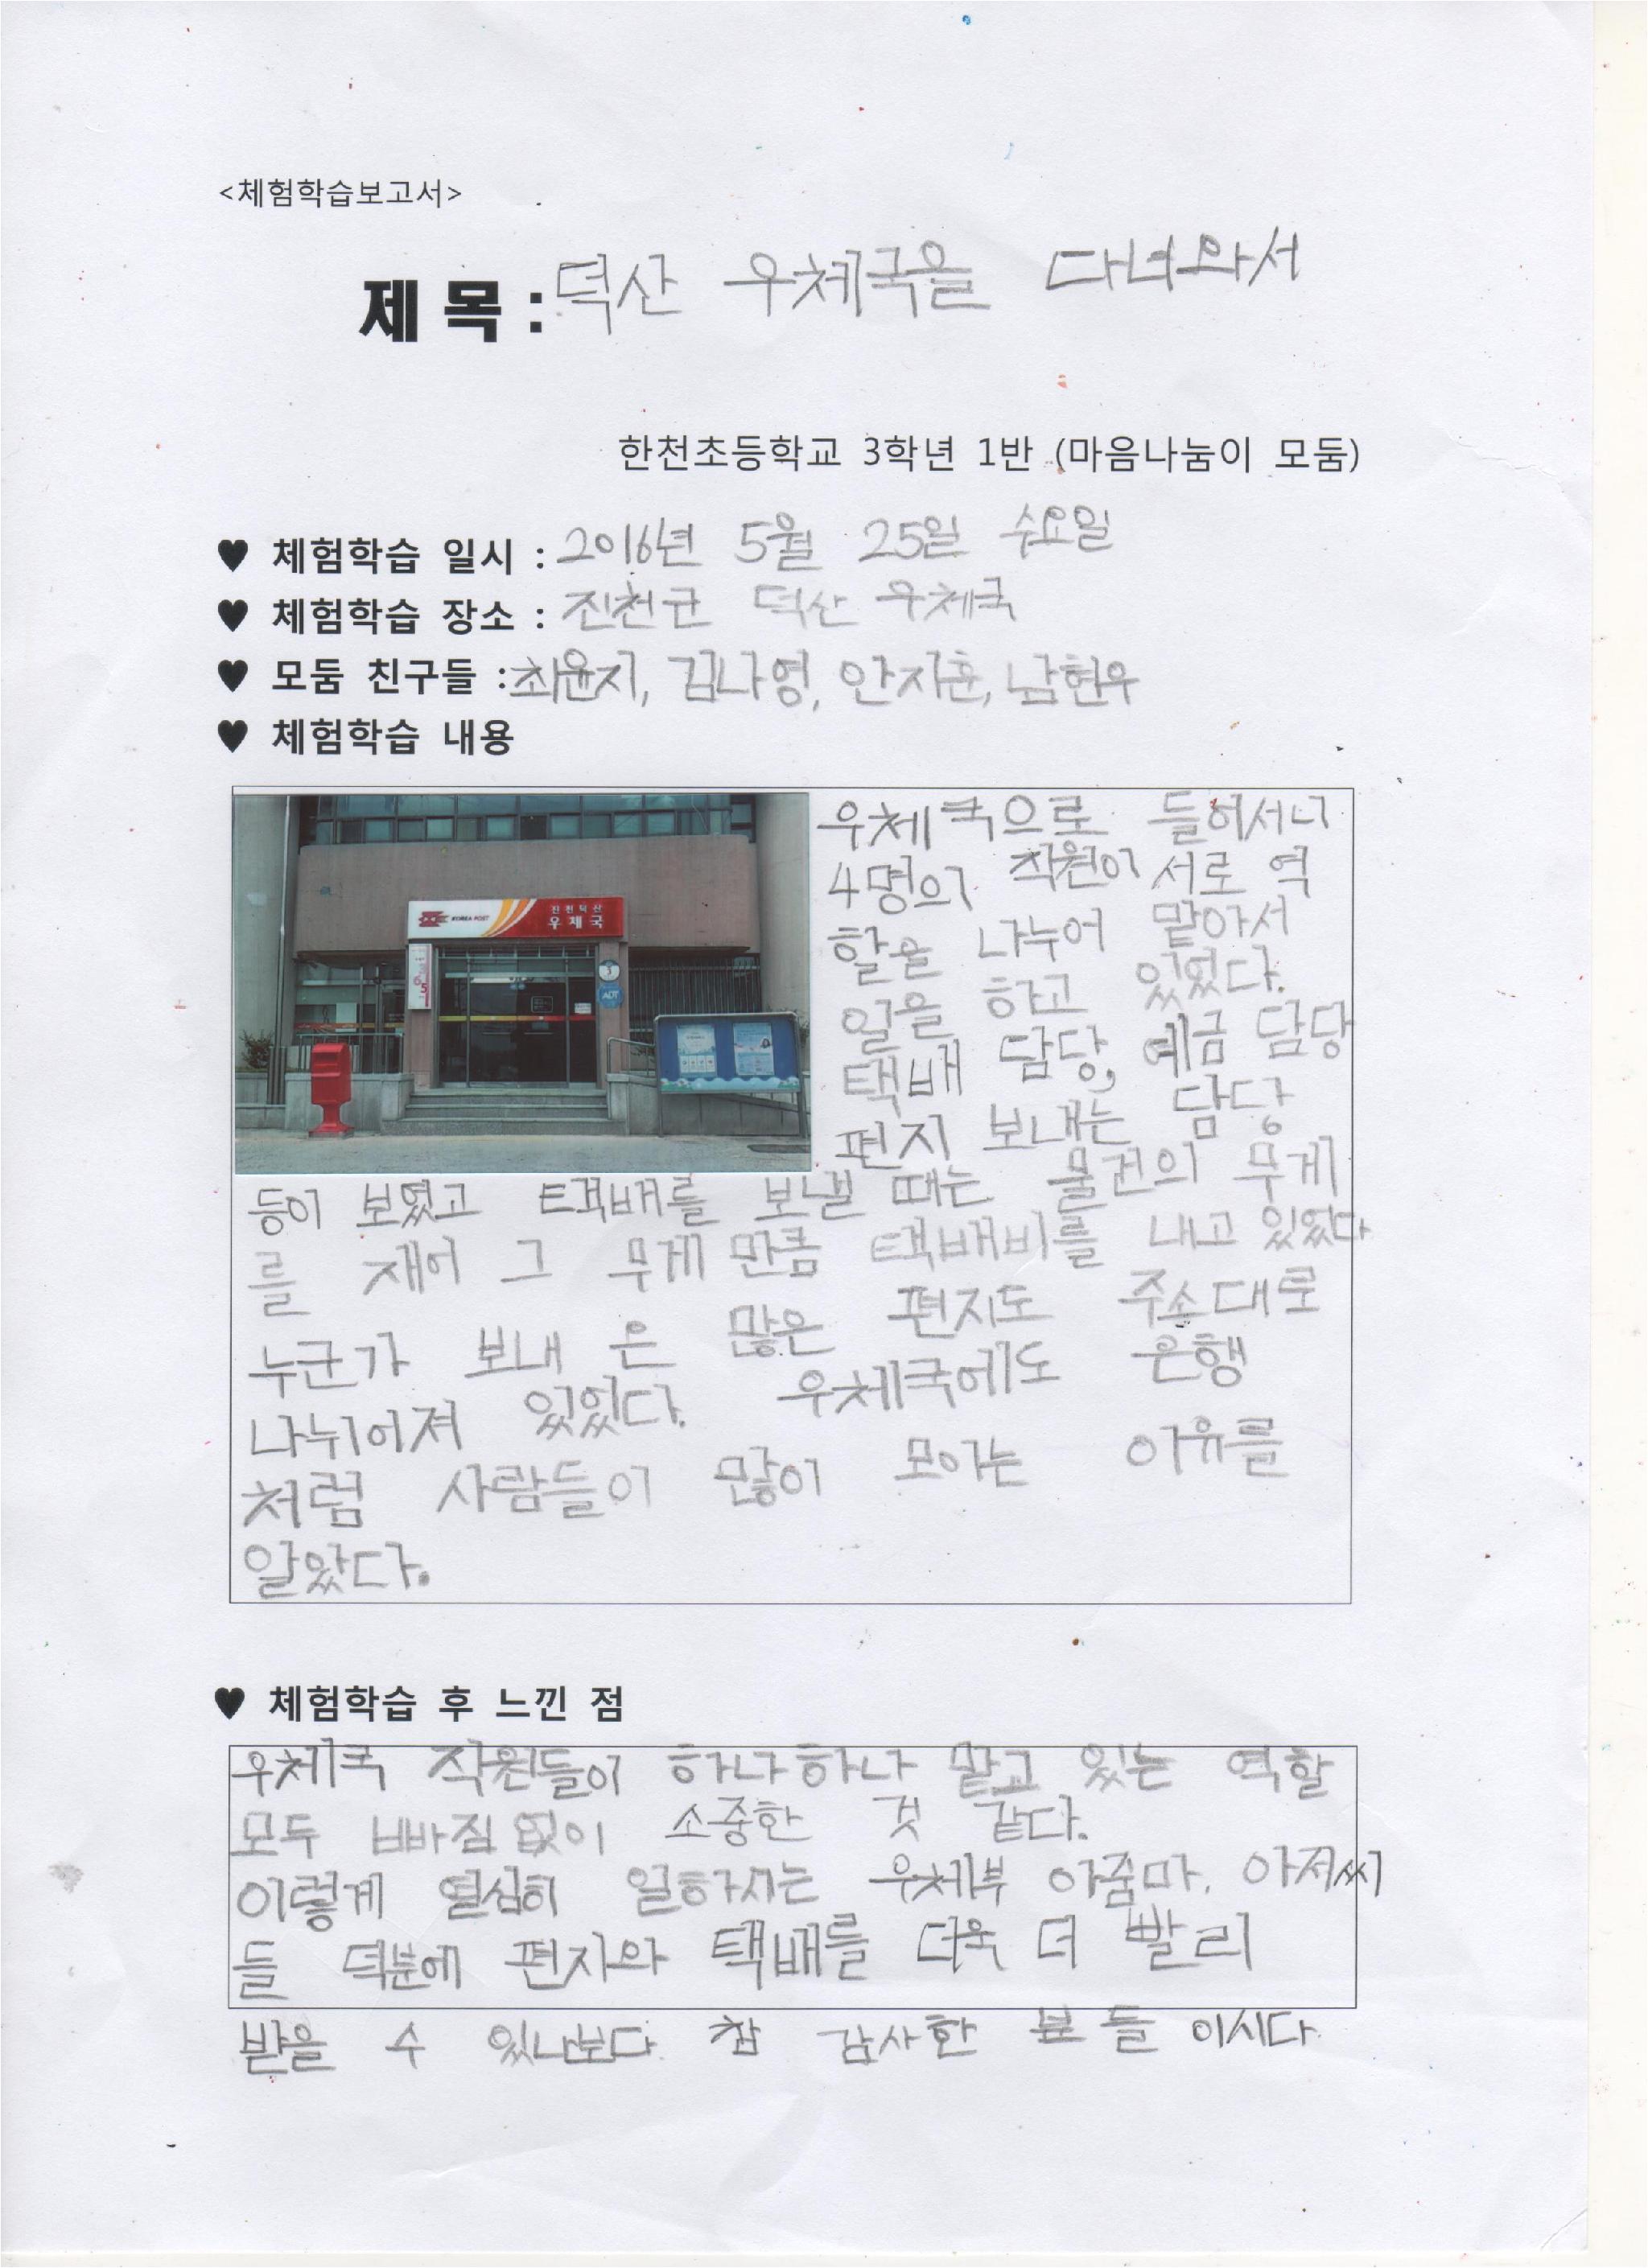 <체험학습보고서>
제 목 : 덕산 우체국을 다녀와서
한천초등학교 3학년 1반 (마음나눔이 모둠)
♥ 체험학습 일시 : 2016년 5월 25일 수요일
♥ 체험학습 장소 : 진천군 덕산 우체국
♥ 모둠 친구들 : 최윤지, 김나영, 안지훈, 남현우
♥ 체험학습 내용
KOREA POST
진천덕산
우체국
ADT
우체국으로 들어서니
4명의 직원이 서로 역
할을 나누어 맡아서
일을 하고 있었다.
택배 담당, 예금 담당
편지 보내는 담당
등이 보였고 택배를 보낼 때는 물건의 무게
를 재어 그 무게 만큼 택배비를 내고 있었다
누군가 보내 은 많은 편지도 주소대로
나뉘어져 있었다. 우체국에도 은행
처럼 사람들이 많이 모이는 이유를
알았다.
♥ 체험학습 후 느낀 점
우체국 직원들이 하나하나 맡고 있는 역할
모두 빠짐없이 소중한 것 같다.
이렇게 열심히 일하시는 우체부 아줌마, 아저씨
들 덕분에 편지와 택배를 더욱 더 빨리
받을 수 있나보다. 참 감사한 분들 이시다.